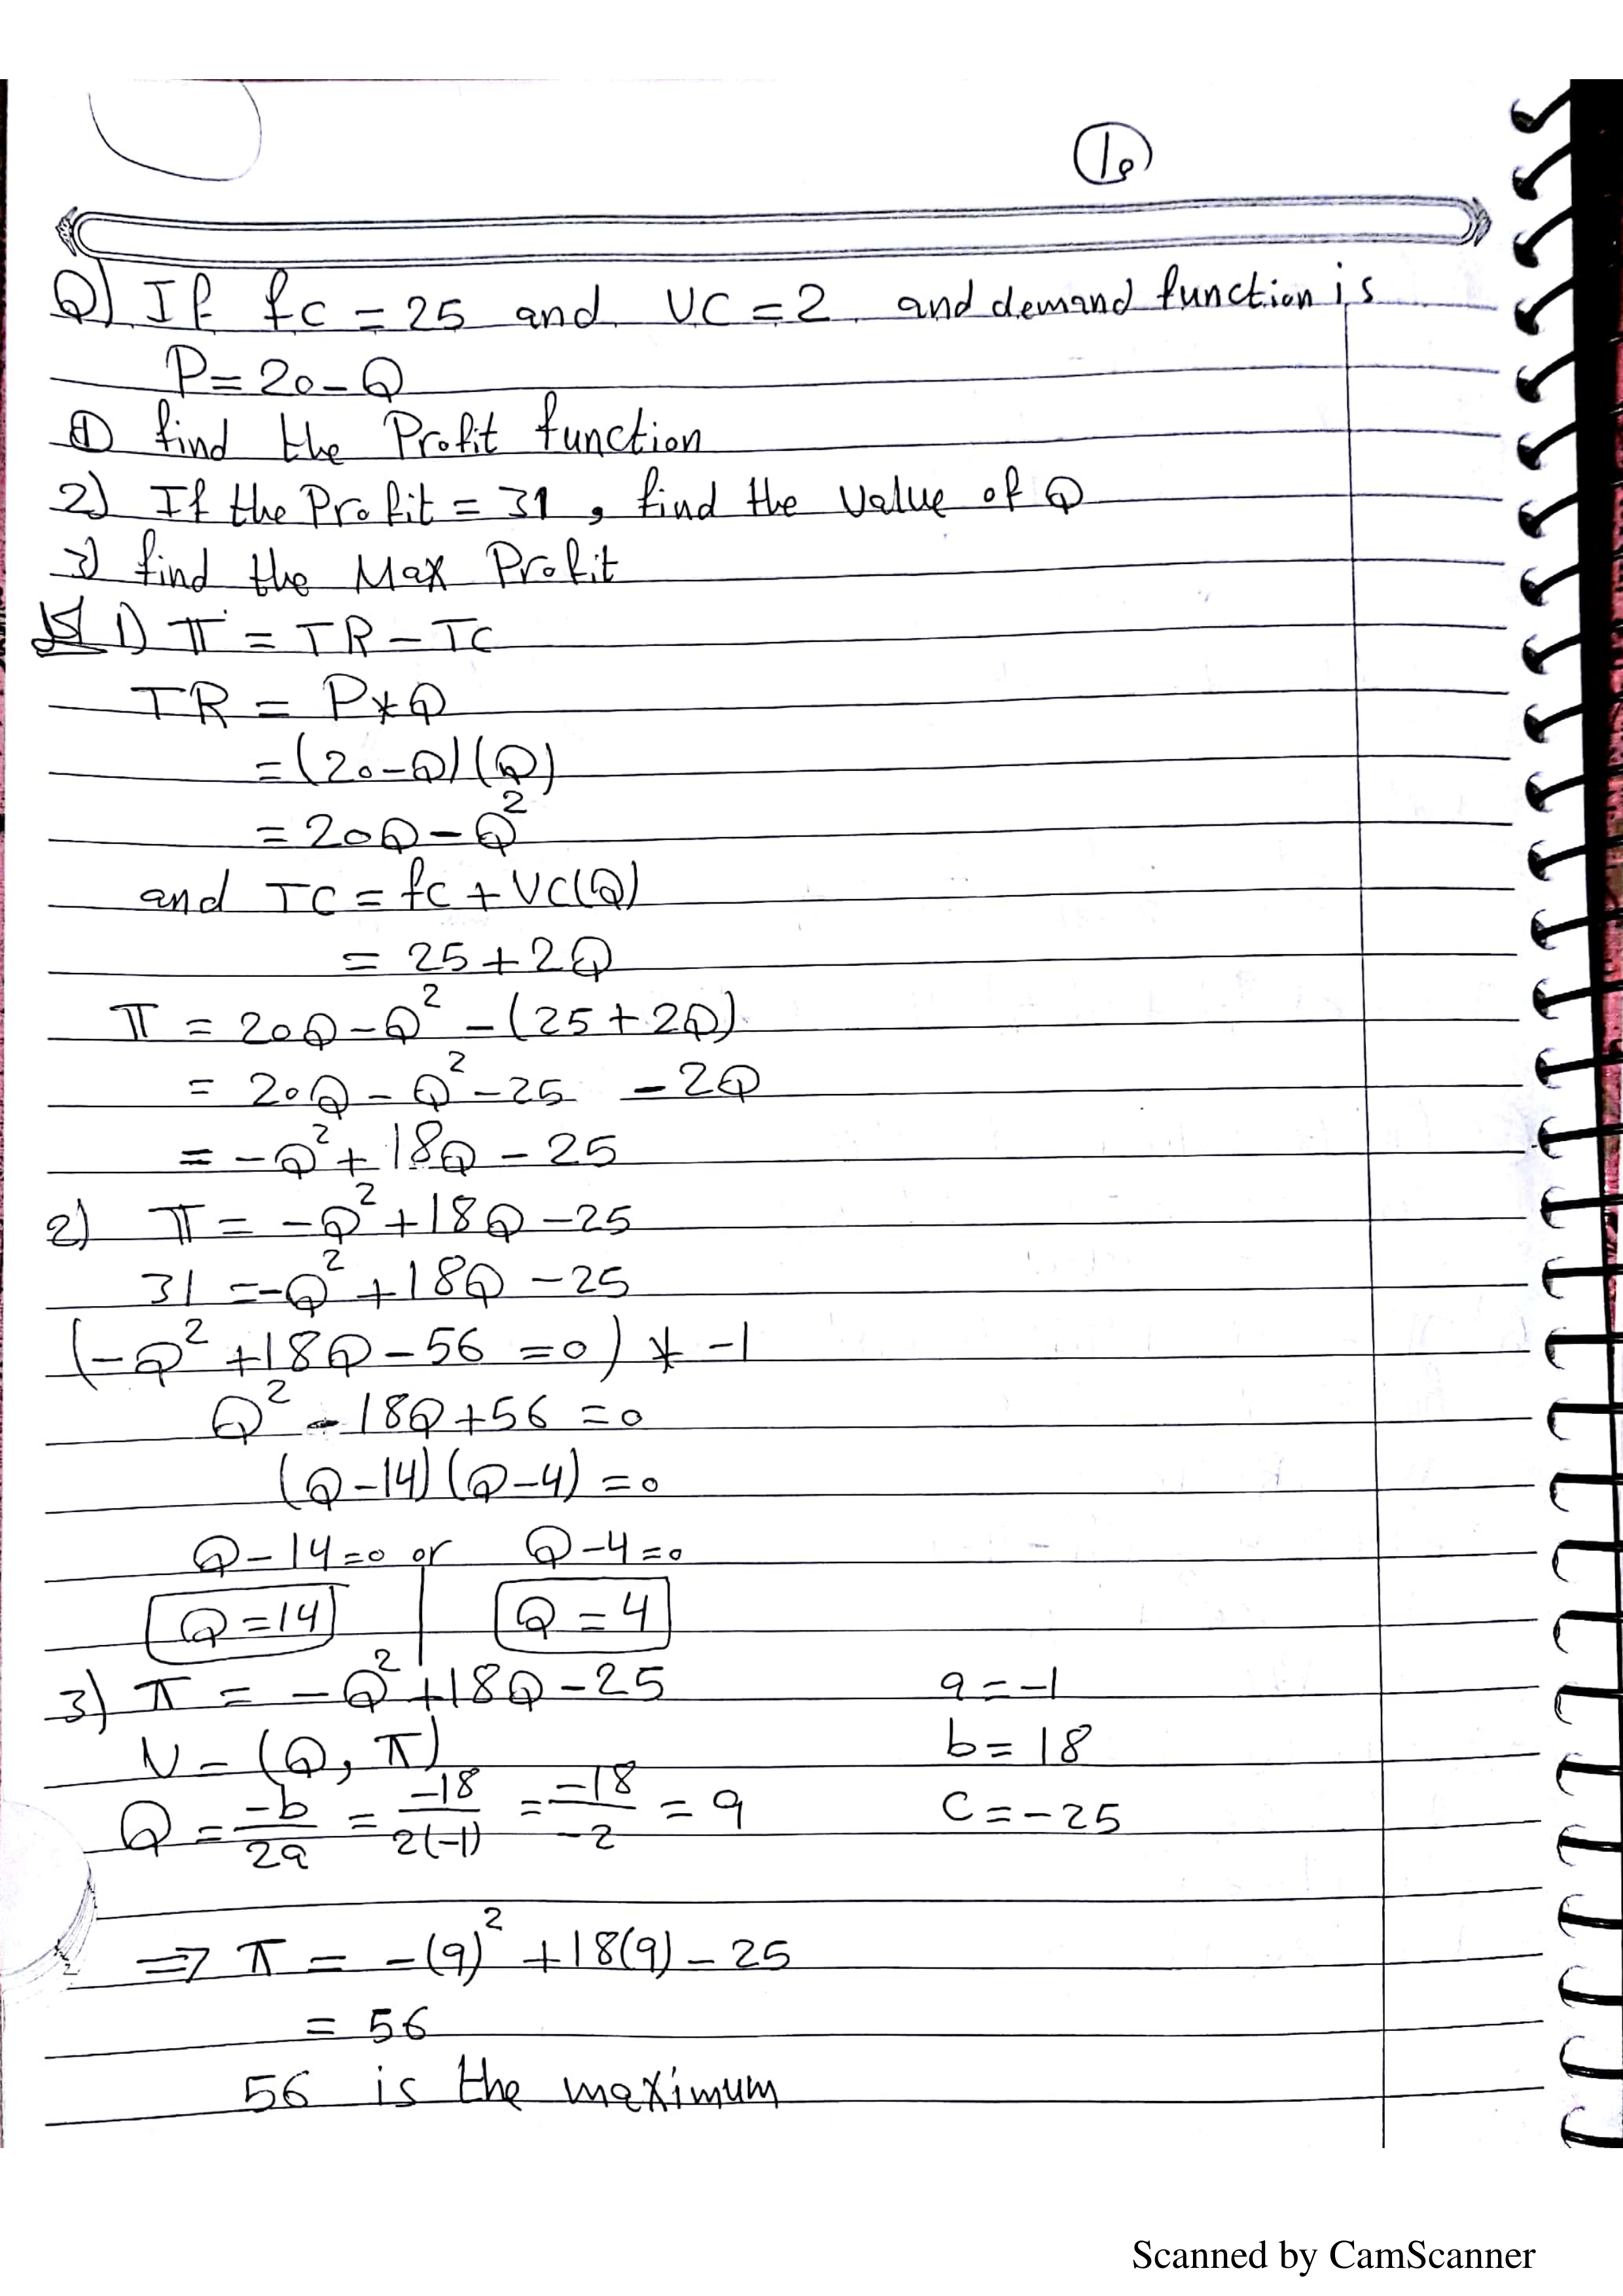 10
Q) If fc = 25 and VC = 2 and demand function is
P = 20 - Q
1) find the Profit function
2) If the Profit = 31, find the value of Q
3) find the Max Profit
1) π = TR - TC
TR = P * Q
= (20 - Q) (Q)
= 20Q - Q²
and TC = fc + VC(Q)
= 25 + 2Q
π = 20Q - Q² - (25 + 2Q)
= 20Q - Q² - 25 - 2Q
= -Q² + 18Q - 25
2) π = -Q² + 18Q - 25
31 = -Q² + 18Q - 25
(-Q² + 18Q - 56 = 0) * -1
Q² - 18Q + 56 = 0
(Q - 14) (Q - 4) = 0
Q - 14 = 0 or Q - 4 = 0
Q = 14 Q = 4
3) π = -Q² + 18Q - 25 a = -1
V = (Q, π) b = 18
Q = -b/2a = -18/2(-1) = -18/-2 = 9 c = -25
⇒ π = -(9)² + 18(9) - 25
= 56
56 is the maximum
Scanned by CamScanner